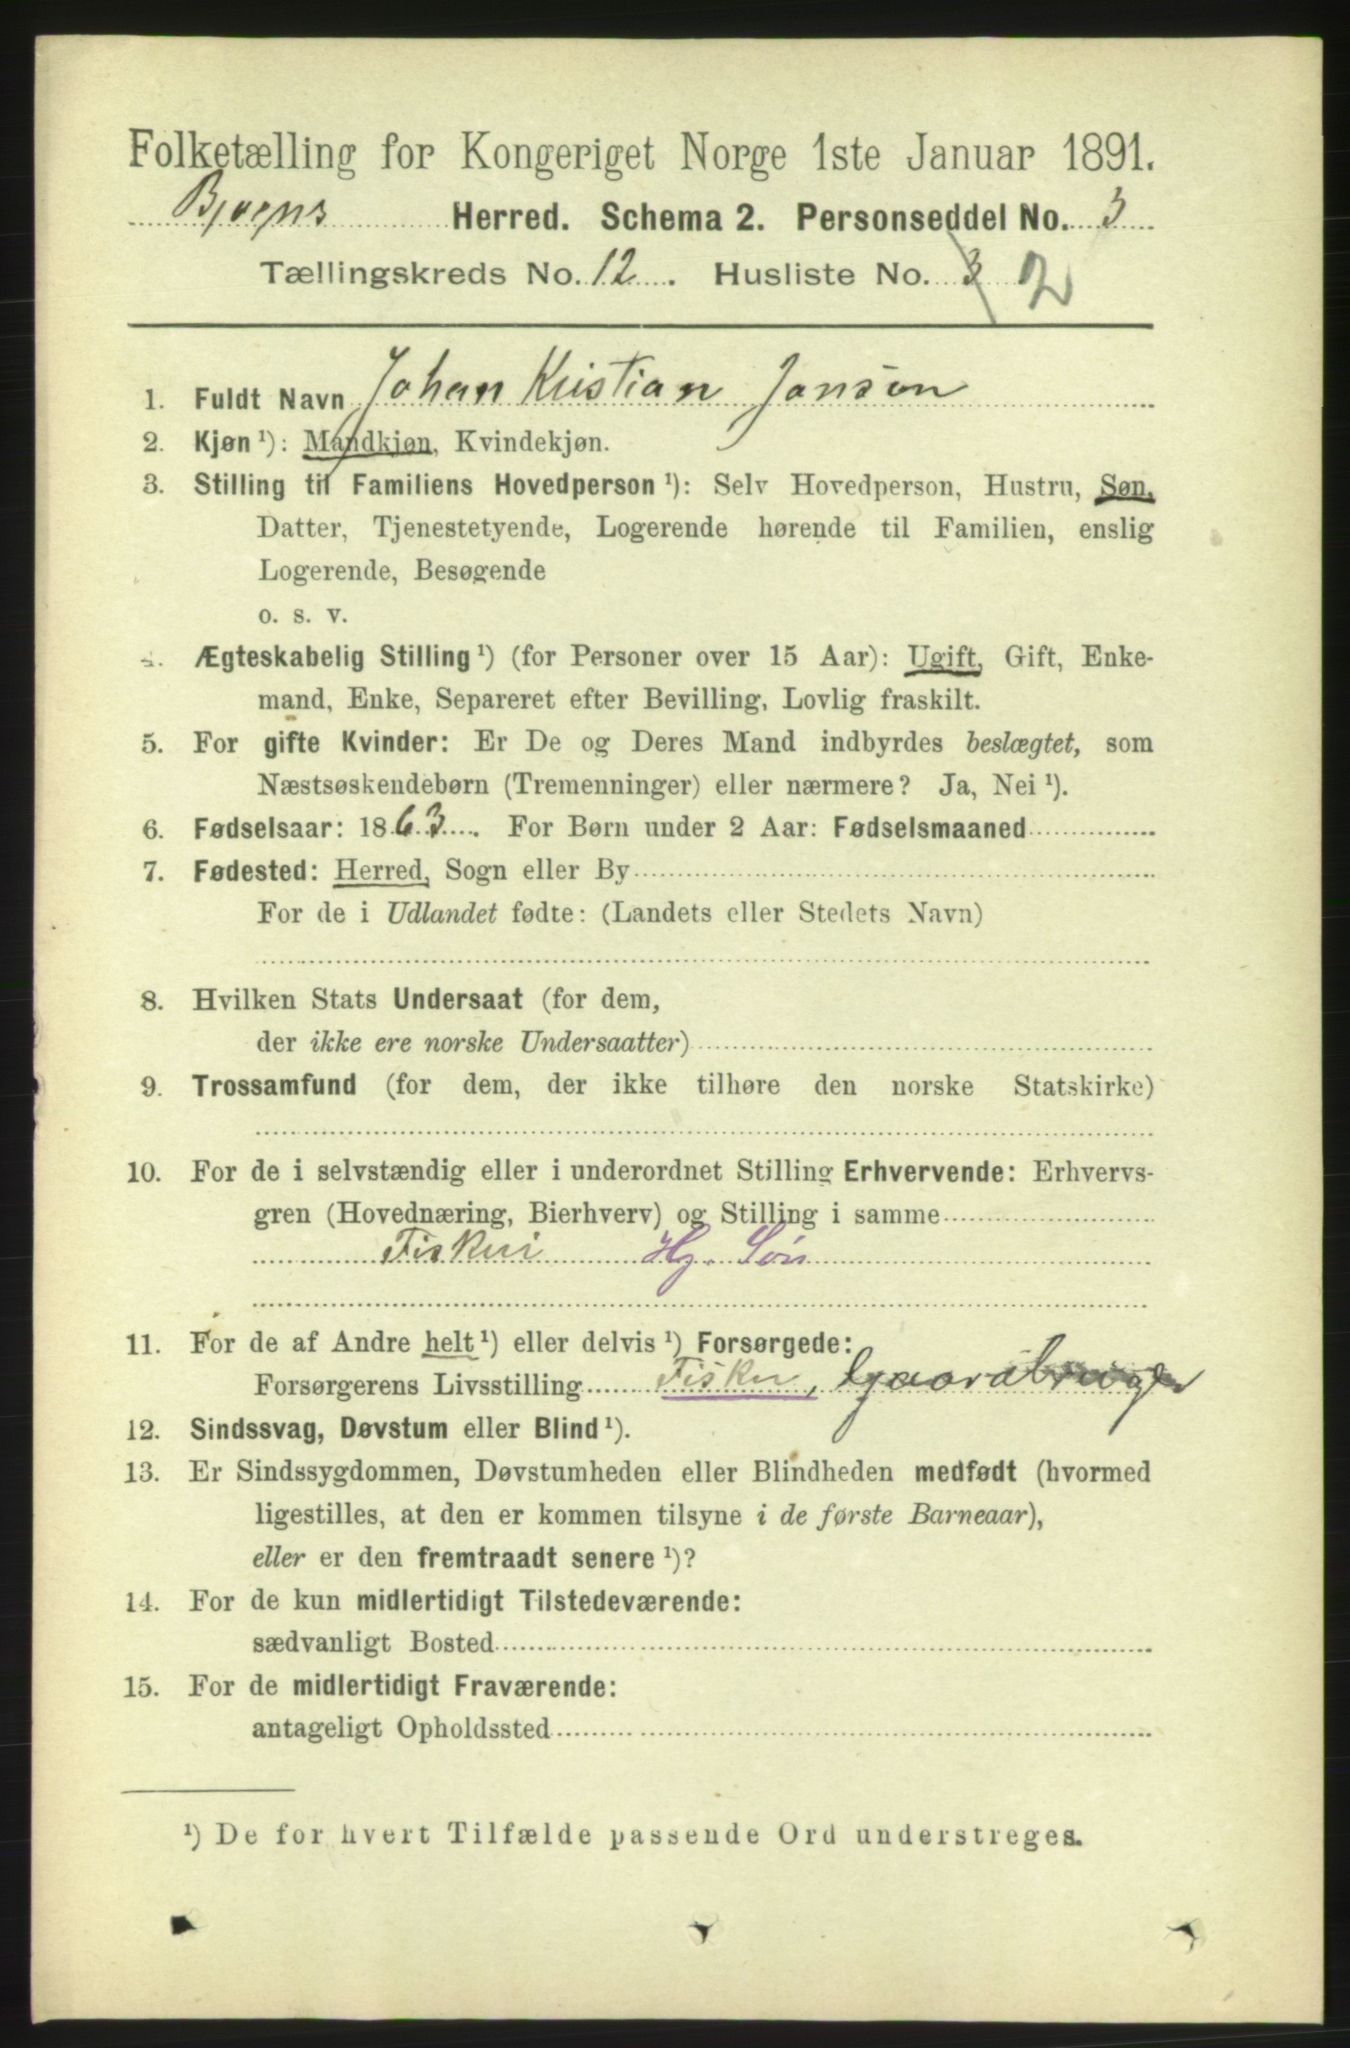 Folketælling for Kongeriget Norge 1ste Januar 1891.
Bjugns Herred. Schema 2. Personseddel No. 3
Tællingskreds No. 12. Husliste No. 3 2
1. Fuldt Navn Johan Kristian Janson
2. Kjøn ¹): Mandkjøn, Kvindekjøn.
3. Stilling til Familiens Hovedperson ¹): Selv Hovedperson, Hustru, Søn,
Datter, Tjenestetyende, Logerende hørende til Familien, enslig
Logerende, Besøgende
o. s. v.
4. Ægteskabelig Stilling ¹) (for Personer over 15 Aar): Ugift, Gift, Enke-
mand, Enke, Separeret efter Bevilling, Lovlig fraskilt.
5. For gifte Kvinder: Er De og Deres Mand indbyrdes beslægtet, som
Næstsøskendebørn (Tremenninger) eller nærmere? Ja, Nei ¹).
6. Fødselsaar: 1863. For Børn under 2 Aar: Fødselsmaaned
7. Fødested: Herred, Sogn eller By
For de i Udlandet fødte: (Landets eller Stedets Navn)
8. Hvilken Stats Undersaat (for dem,
der ikke ere norske Undersaatter)
9. Trossamfund (for dem, der ikke tilhøre den norske Statskirke)
10. For de i selvstændig eller i underordnet Stilling Erhvervende: Erhvervs-
gren (Hovednæring, Bierhverv) og Stilling i samme
Fiskeri Hj. Søn
11. For de af Andre helt ¹) eller delvis ¹) Forsørgede:
Forsørgerens Livsstilling Fisker, Gaardbruger
12. Sindssvag, Døvstum eller Blind ¹).
13. Er Sindssygdommen, Døvstumheden eller Blindheden medfødt (hvormed
ligestilles, at den er kommen tilsyne i de første Barneaar),
eller er den fremtraadt senere ¹)?
14. For de kun midlertidigt Tilstedeværende:
sædvanligt Bosted
15. For de midlertidigt Fraværende:
antageligt Opholdssted
¹) De for hvert Tilfælde passende Ord understreges.